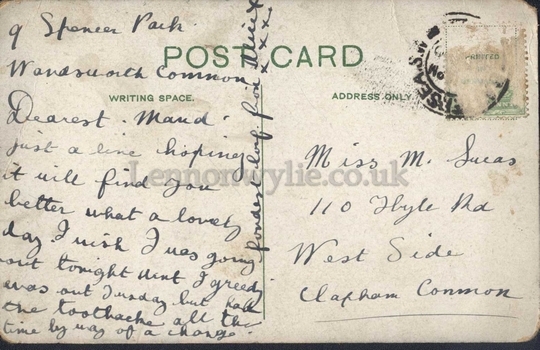 9 Spencer Park
POST CARD
Wandsworth Common
WRITING SPACE.
ADDRESS ONLY.
Dearest Maud
just a line hoping
it will find you
better what a lovely
day. I wish I was going
out tonight aint I greedy
was out Tuesday but had
the toothache all the
time by way of a change.
fondest love from
x x x x
Miss M. Lucas
110 Rd
West Side
Clapham Common
PRINTED
Lennonwylie.co.uk